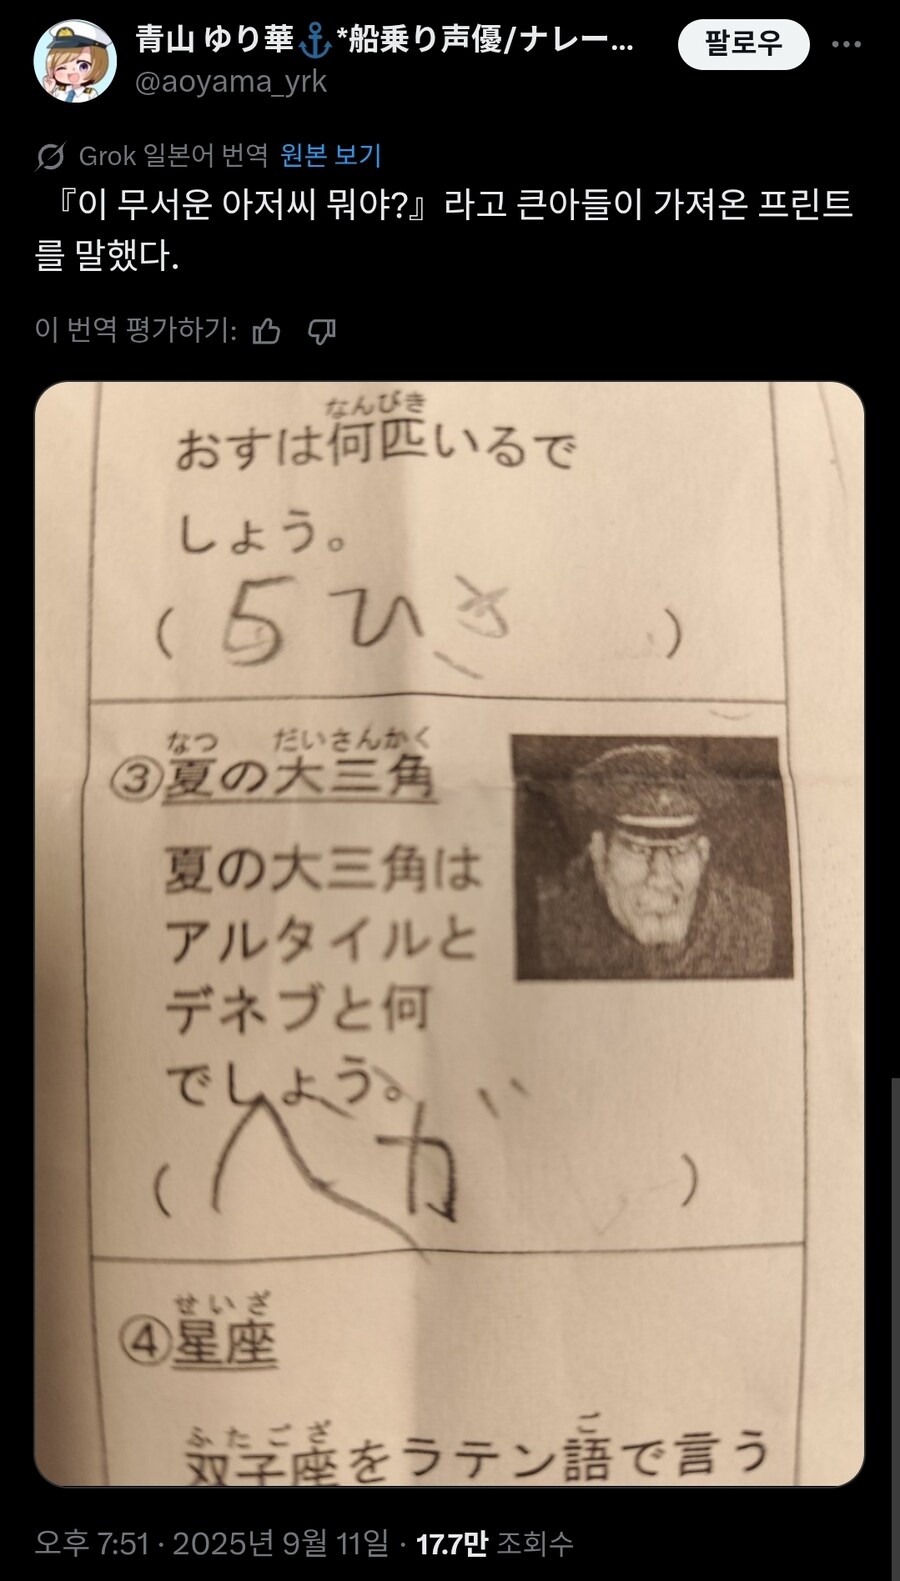 青山 ゆり華⚓*船乗り声優/ナレー...
팔로우
@aoyama_yrk
Grok 일본어 번역 원본 보기
『이 무서운 아저씨 뭐야?』라고 큰아들이 가져온 프린트
를 말했다.
이 번역 평가하기:
なんびき
おすは何匹いるで
しょう。
( 5ひき )
なつ だいさんかく
③夏の大三角
夏の大三角は
アルタイルと
デネブと何
でしょう。
( ベガ )
せいざ
④星座
ふたござ ご
双子座をラテン語で言う
오후 7:51 · 2025년 9월 11일 · 17.7만 조회수